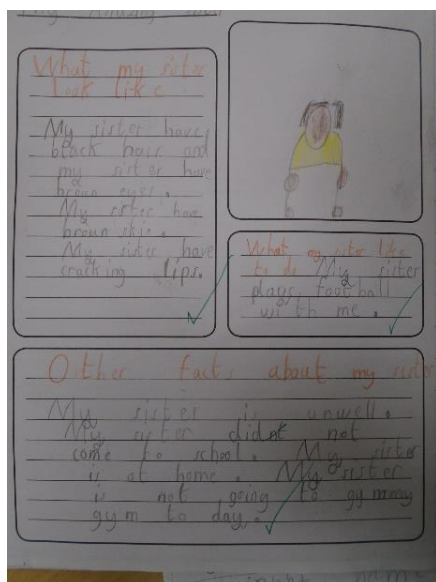 What my sister
look like
My sister have
black hair and
my sister have
brown eyes.
My sister have
brown skin.
My sister have
cracking lips.
What my sister like
to do My sister
plays football
with me.
Other facts about my sister
My sister is unwell.
My sister didnt not
come to school. My sister
is at home. My sister
is not going to gymmy
gym to day.